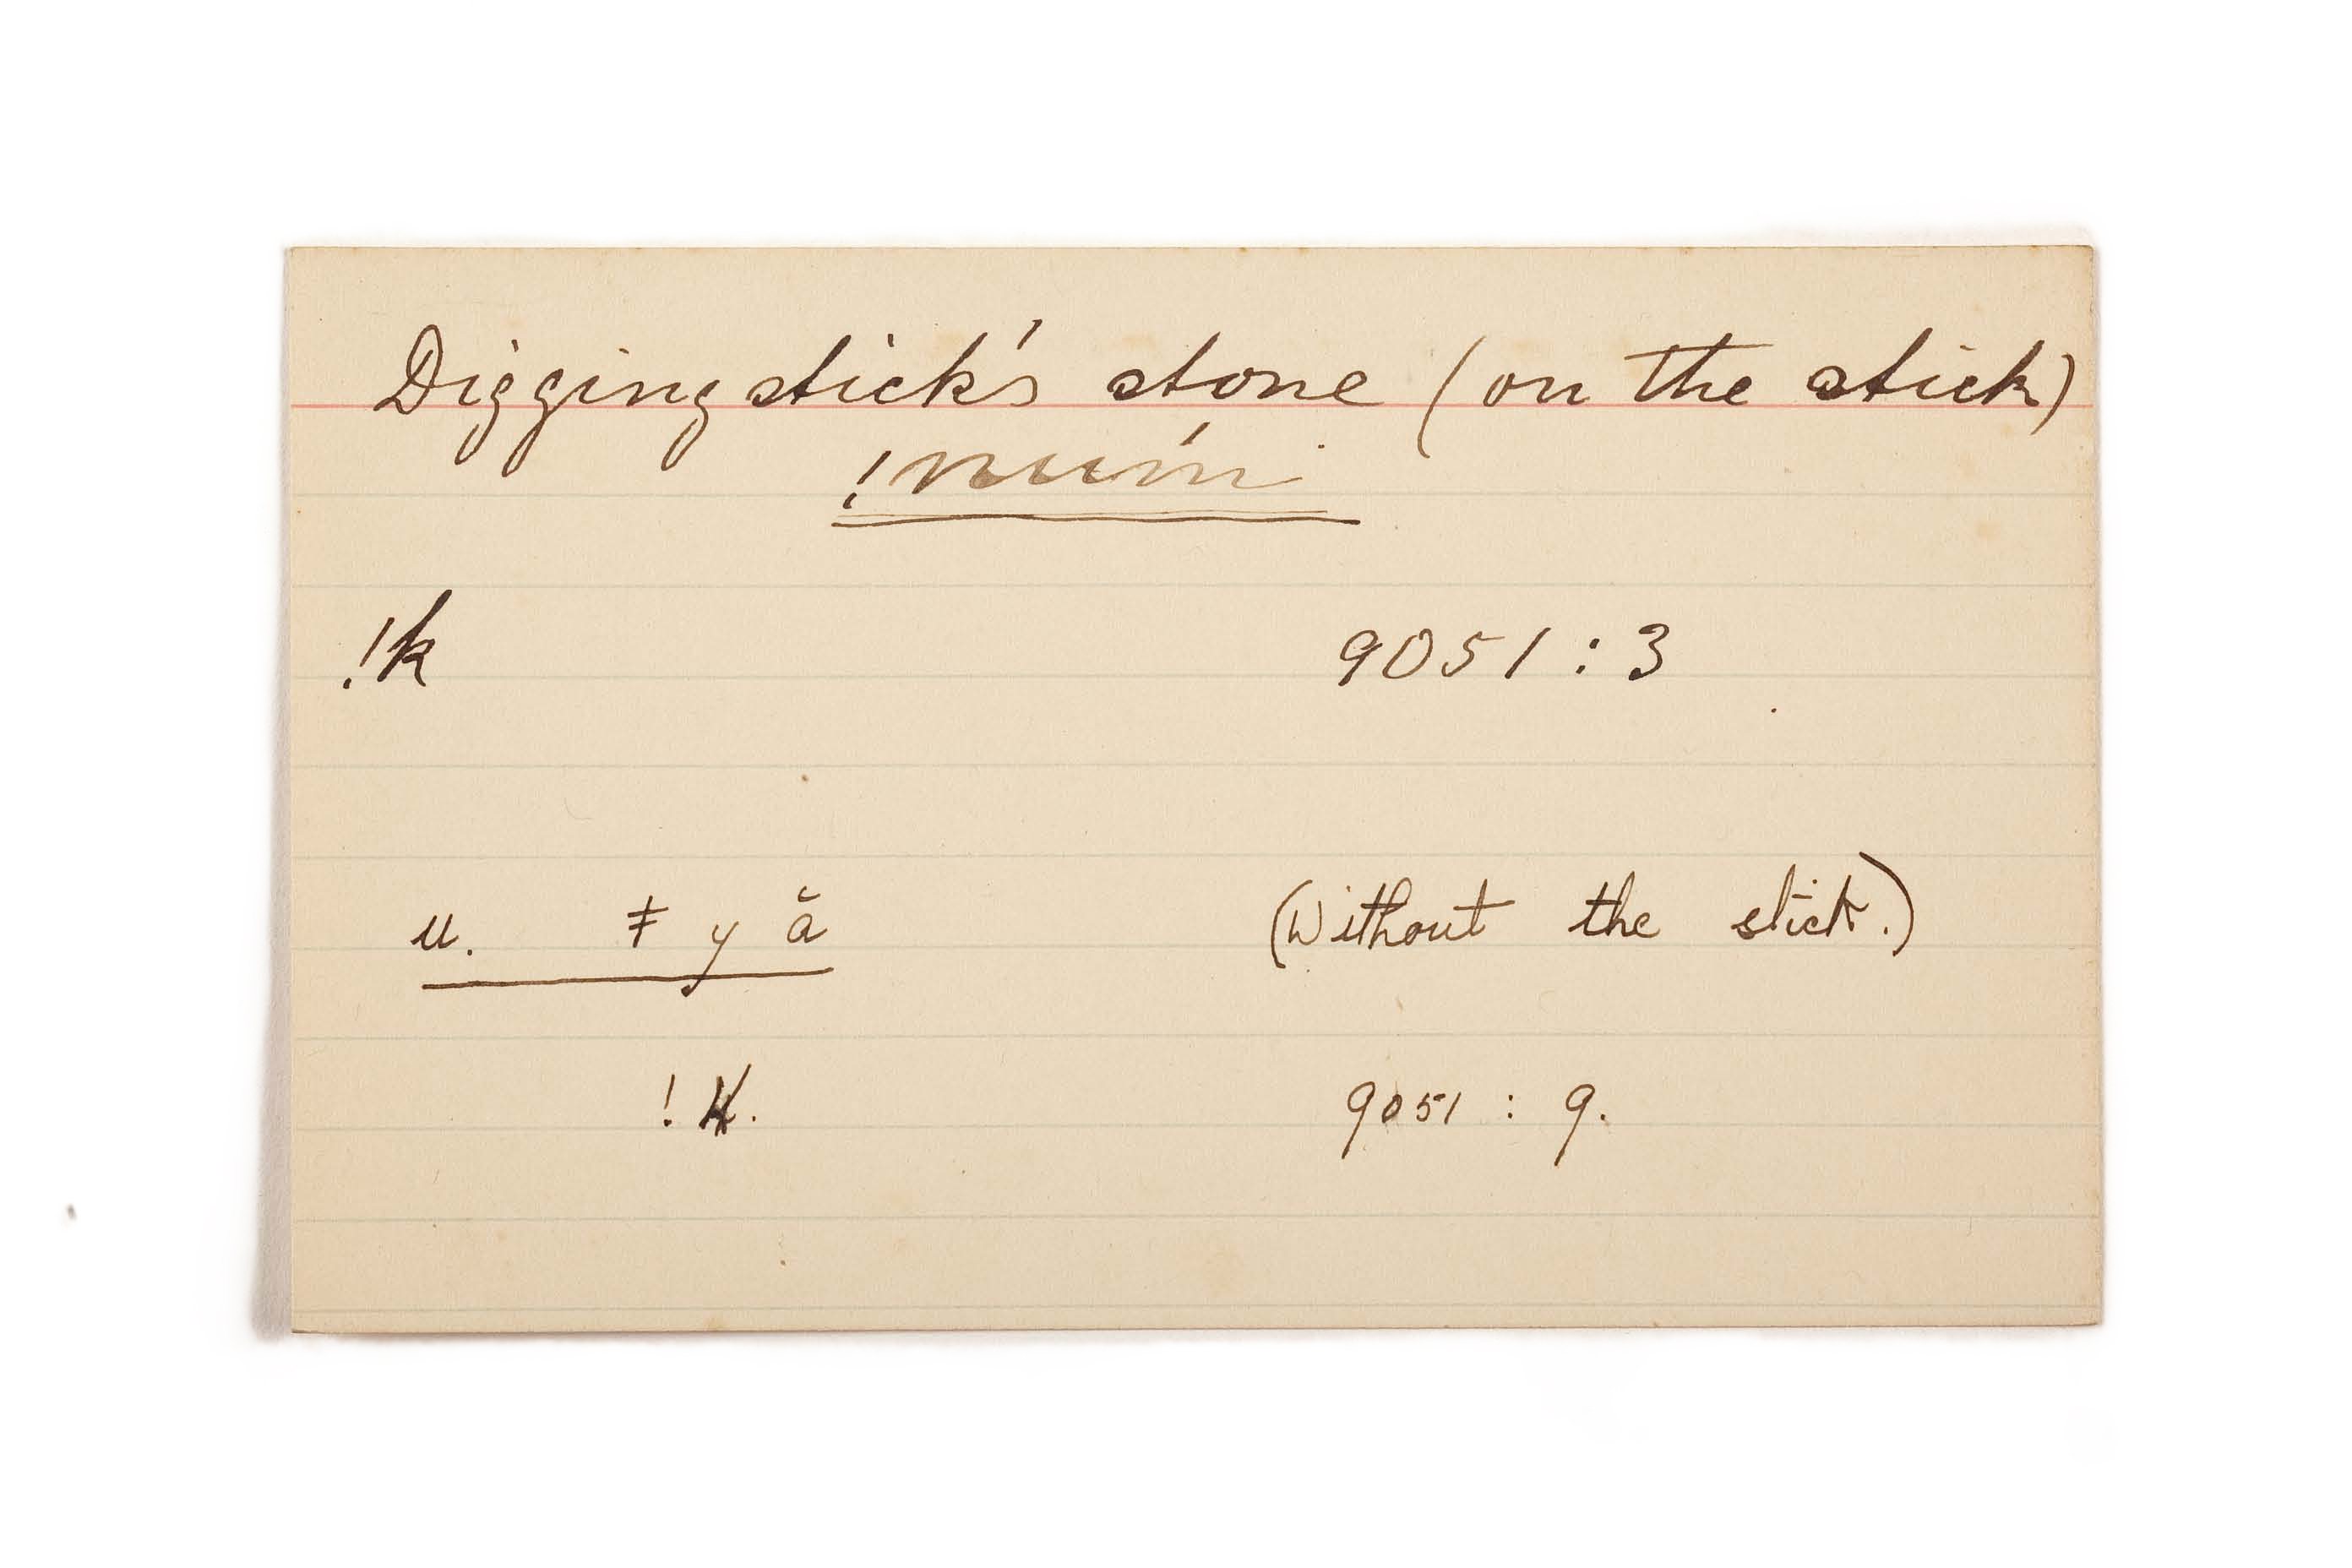 Digging stick's stone (on the stick)
!núm
!k 9051 : 3
u. ǂ y ă (Without the stick.)
!K. 9051 : 9.